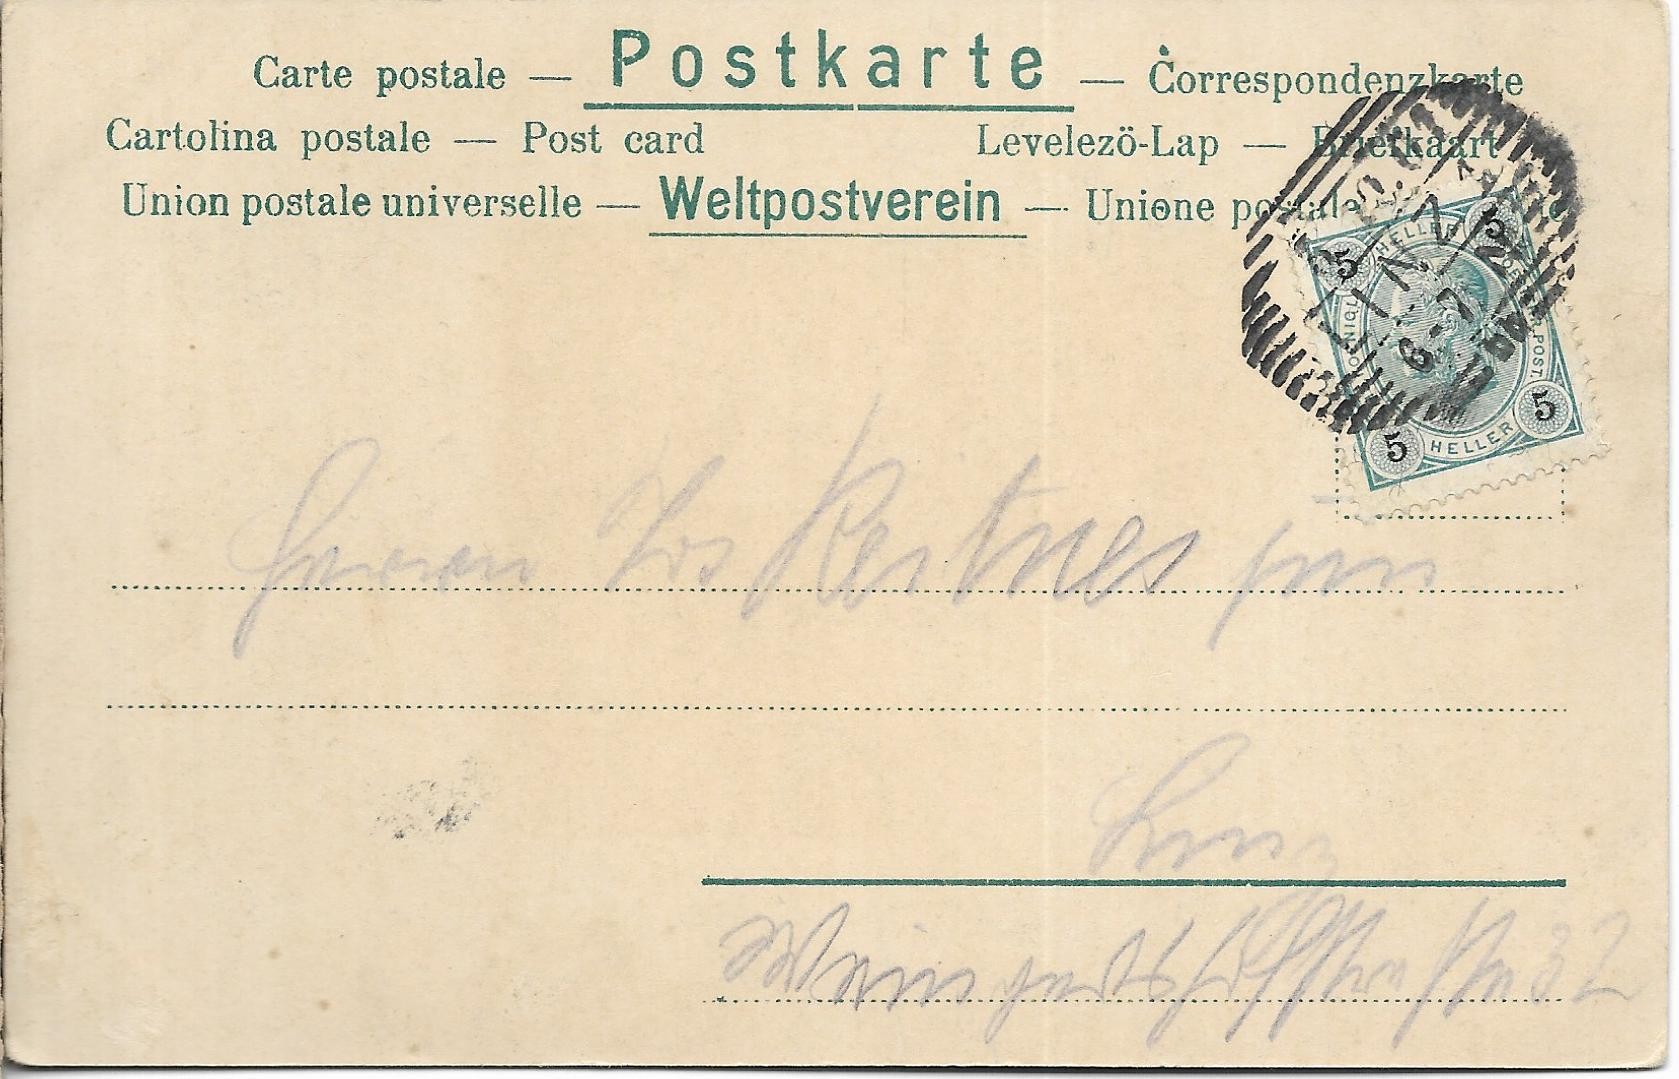 Carte postale — Postkarte — Correspondenzkarte
Cartolina postale — Post card Levelezö-Lap — Briefkaart
Union postale universelle — Weltpostverein — Unione postale
5 HELLER 5
POST.
5 HELLER 5
LINZ
Herrn Jos Reitner jun
Linz
32